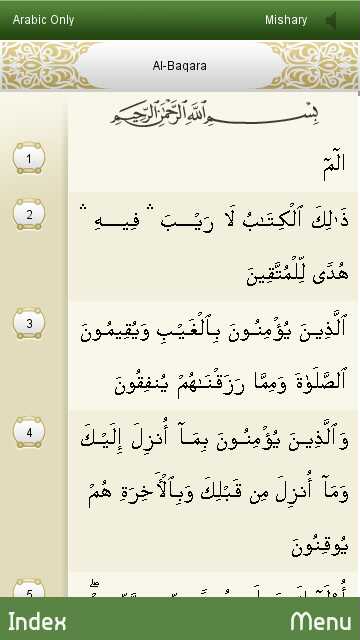 Arabic Only Mishary
Al-Baqara
بِسْمِ اللَّهِ الرَّحْمَٰنِ الرَّحِيمِ
1
الٓمٓ
2
ذَٰلِكَ ٱلْكِتَـٰبُ لَا رَيْـــبَ ۛ فِيـــهِ ۛ
هُدًى لِّلْمُتَّقِينَ
3
ٱلَّذِيـنَ يُؤْمِنُـونَ بِـٱلْغَيْـبِ وَيُقِيمُـونَ
ٱلصَّلَوٰةَ وَمِمَّا رَزَقْنَـٰهُمْ يُنفِقُونَ
4
وَٱلَّذِيـنَ يُؤْمِنُـونَ بِمَـآ أُنزِلَ إِلَيْـكَ
وَمَآ أُنزِلَ مِن قَبْلِكَ وَبِٱلْـَٔاخِرَةِ هُمْ
يُوقِنُونَ
5
Index Menu